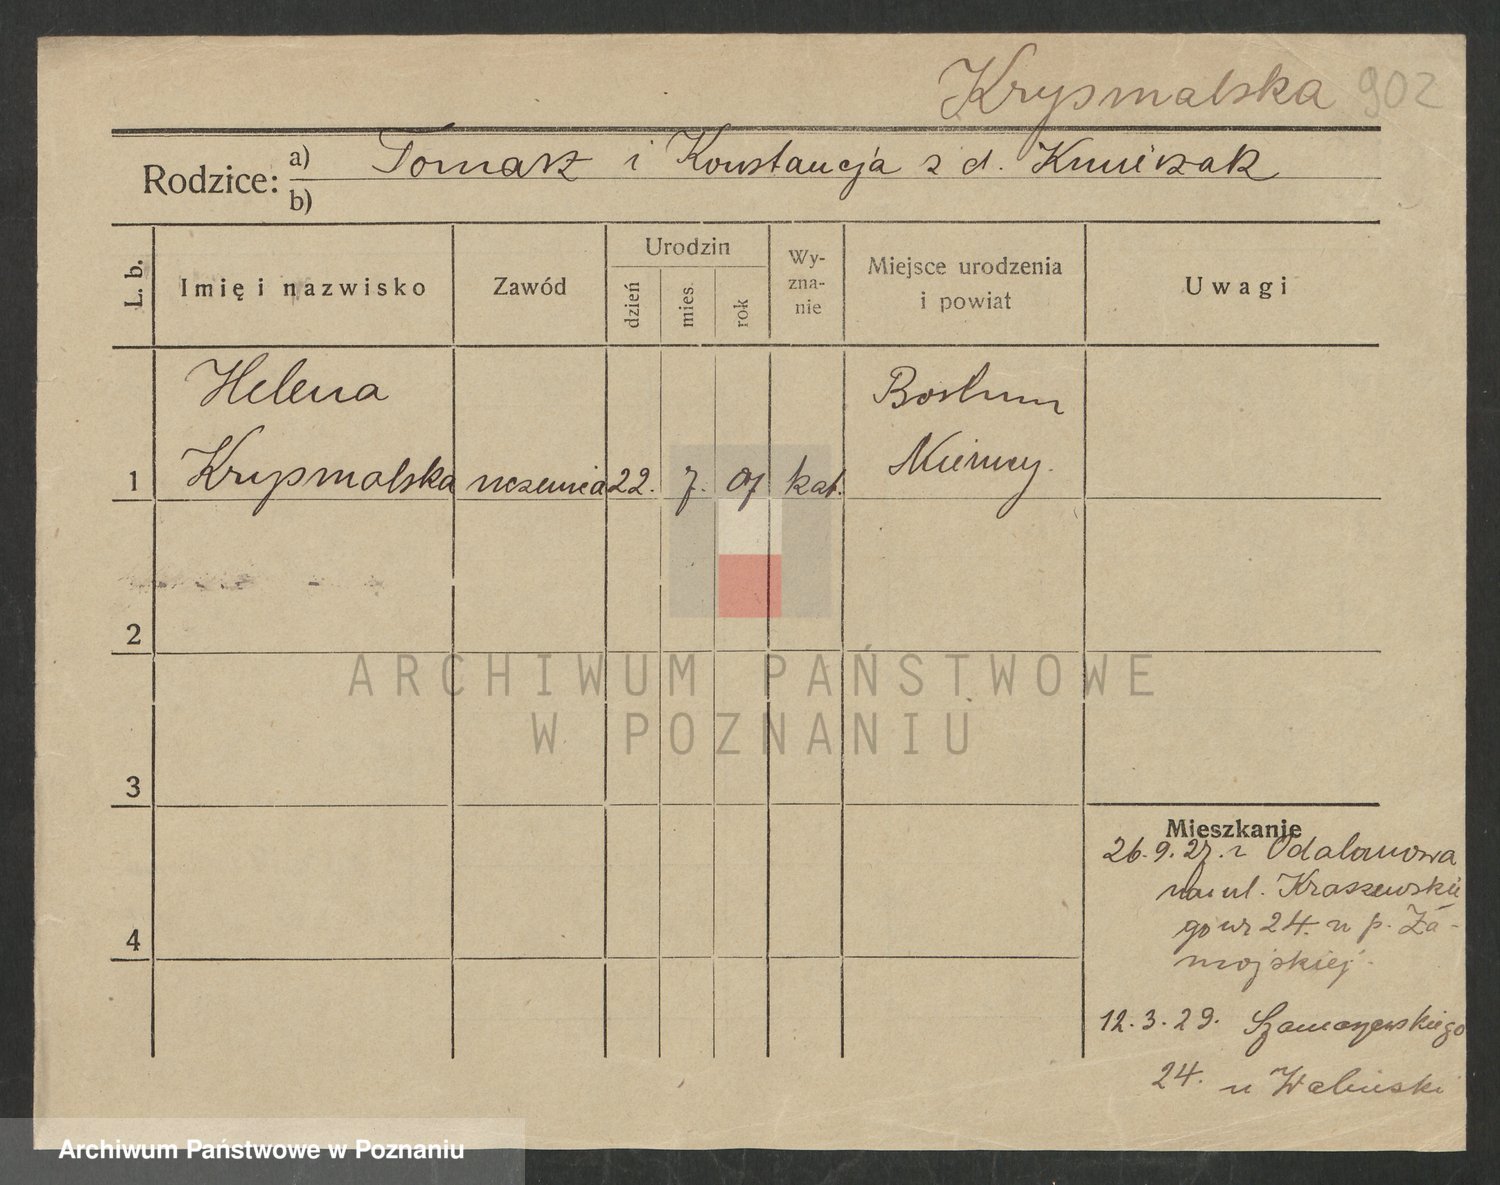 Krysmalska 902
Rodzice: a) Tomasz i Konstancja z d. Kmiczak
b)
L. b.
Imię i nazwisko
Zawód
Urodzin
dzień
mies.
rok
Wy-
zna-
nie
Miejsce urodzenia
i powiat
Uwagi
Helena
Krysmalska
1
uczenica
22.
7.
07
kat.
Bochum
Niemcy.
2
3
4
ARCHIWUM PAŃSTWOWE
W POZNANIU
Mieszkanie
26.9.27. z Odalanowa
na ul. Kraszewskie
go nr 24. u p. Za-
mojskiej.
12.3.29. Szamarzewskiego
24. u
Archiwum Państwowe w Poznaniu